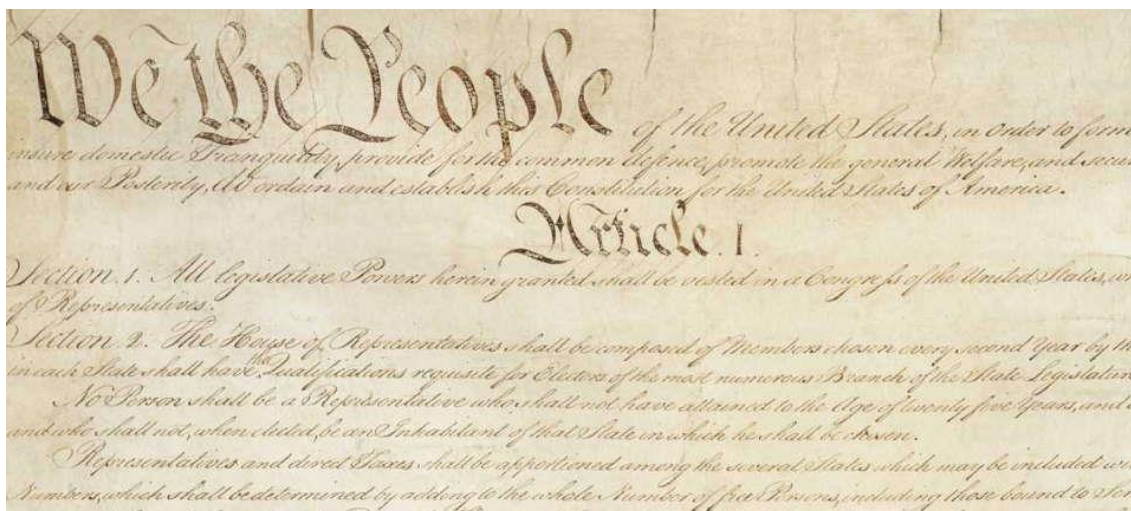 We the People of the United States, in Order to form
insure domestic Tranquility, provide for the common defence, promote the general Welfare, and secu
and our Posterity, do ordain and establish this Constitution for the United States of America.
Article. I.
Section. 1. All legislative Powers herein granted shall be vested in a Congress of the United States, wh
of Representatives.
Section. 2. The House of Representatives shall be composed of Members chosen every second Year by the
in each State shall have the Qualifications requisite for Electors of the most numerous Branch of the State Legislatur
No Person shall be a Representative who shall not have attained to the Age of twenty five Years, and
and who shall not, when elected, be an Inhabitant of that State in which he shall be chosen.
Representatives and direct Taxes shall be apportioned among the several States which may be included wi
Numbers, which shall be determined by adding to the whole Number of free Persons, including those bound to Ser